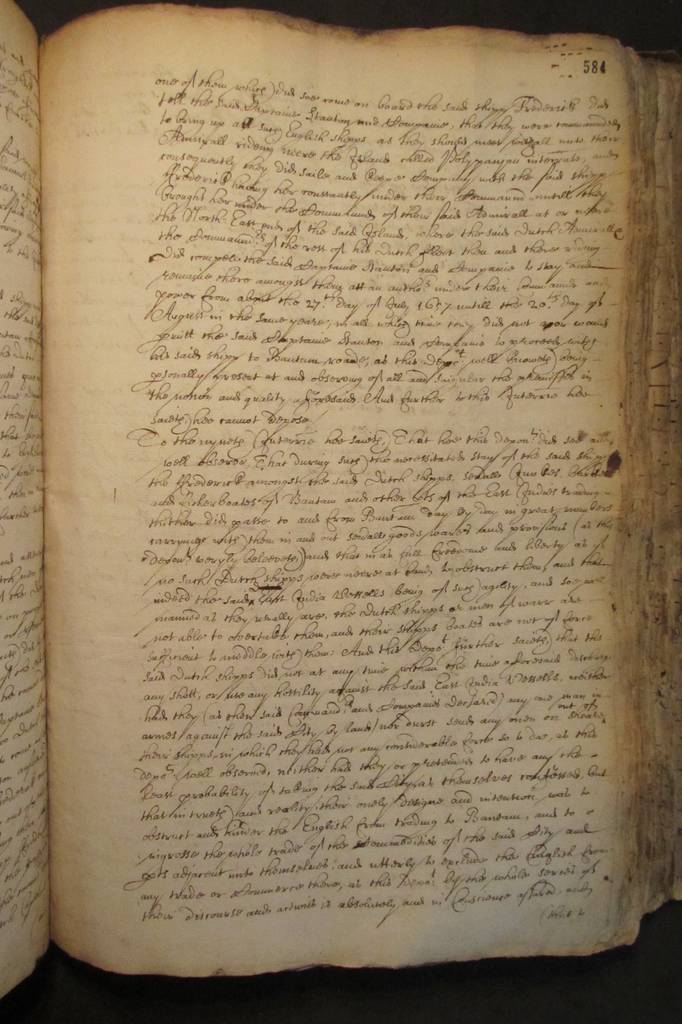 584
one of them which) did soe come on board the said shipp Frederick did
tell the said Captaine Stanton and Companie, that they were commanded
to bring up all such English shipps as they should meet withall unto their
Admirall rideing neere the Island called Polypanjan interprate, and
consequently they did saile and keepe Company with the said shipp
Frederick having her constantly under their Command untill they
brought her under the Command of their said Admirall at or neere
the North East end of the said Island, where the said Dutch Admirall
the Command.r of the rest of his dutch fleet then and there rideing
did compell the said Captaine Stanton and Companie to stay and
remaine there amongst them att an anchor under their Command and
power from about the 27.th day of July 1657 untill the 20.th day of
August in the same yeare, in all which time they did not nor would
permitt the said Captaine Stanton and Companie to proceed with
his said shipp to Bantam roade, as this depo.t well knoweth) being
psonally present at and observing of all and singular the premisses in
the nature and quality aforesaid And further to this Interrie hee
saieth) hee cannot depose
To the nyneth Interrie hee saieth, That hee this depon.t did see and
well observe That during such) the necessitated stay of the said shipp
the Frederick amongst the said Dutch shipps, severall Junckes,
and fisherboates of Bantam and other pts of the East Indies trading
thither did passe to and from Bantam day by day in great numbers
carryinge with) them in and out severall goods wares and provisions (as this
depon.t veryly beleeveth) and that in as full freedome and liberty as if
no such Dutch shipps were neere at hand to obstruct them, and that
indeed the said East India Vessells being of such) agility, and soe well
manned as they usually are, the dutch shipps or men of warr are
not able to overtake them, and their shipps boates are not of force
sufficient to meddle with) them: And this depo.t further saieth) that the
said dutch shipps did not at any time within the time aforesaid discharge
any shott, or use any hostility against the said East India Vessells, neither
had they (as their said Command.r and Companie declared) any one man in
armes against the said City by land, nor durst send any men on shoare out of
their shipps, in which they had not any considerable force so to doe, as this
depo.t well observed, neither had they or pretended to have any the
least probability of takeing the said City, as themselves confessed, but
that in truth) and reality their onely designe and intention was to
obstruct and hinder the English from trading to Bantam, and to
ingrosse the whole trade of the Commodities of the said City and
pts adjacent unto themselves, and utterly to exclude the English from
any trade or Commerce there, as this depo.t by the whole series of
their discourse and actions is absolutely and in Conscience assured, and